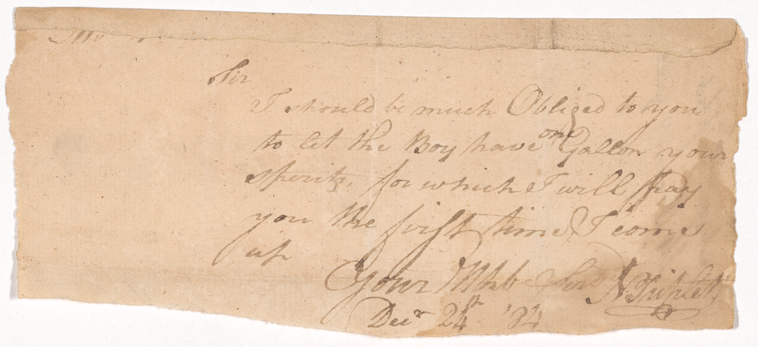 Sir
I should be much Obliged to you
to let the Boy have one Gallon your
spirits, for which I will pay
you the first time I come
up
Your Hble Serv
Decr 24th '84